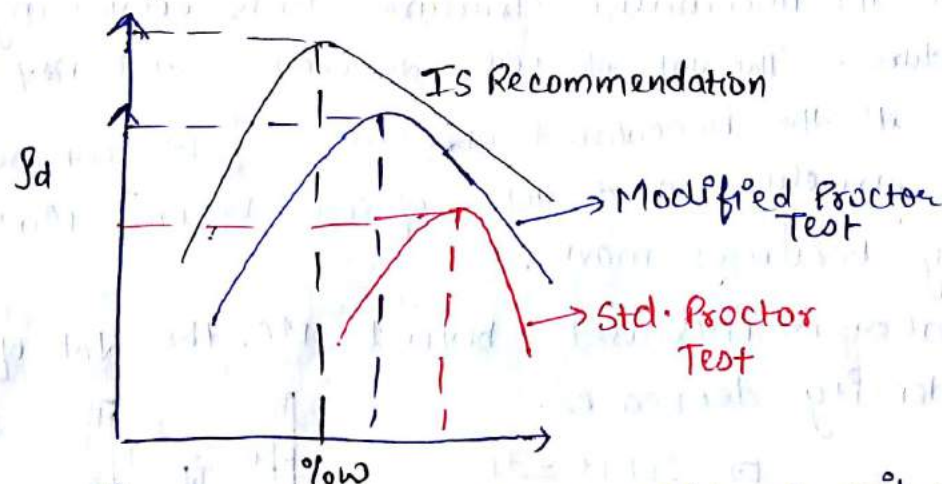 IS Recommendation
ρd
Modified Proctor
Test
Std. Proctor
Test
%w